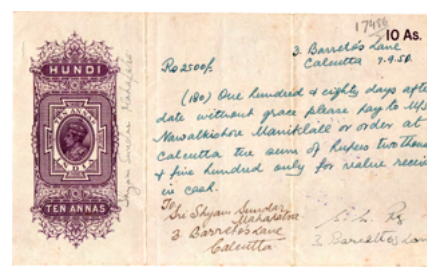 17456
10 As.
HUNDI
TEN ANNAS
INDIA
TEN ANNAS
Shyam Sundar Mahapatra
3. Barretto's Lane
Calcutta 7.9.51.
Rs 2500/-
(180) One hundred & eighty days afte
date without grace please pay to M/s
Nawalkishore Manikklall or order at
Calcutta the sum of Rupees two thous
& five hundred only for value receiv
in cash.
To
Sri Shyam Sundar
Mahapatra
3. Barretto's Lane
Calcutta
3 Barretto's Lan